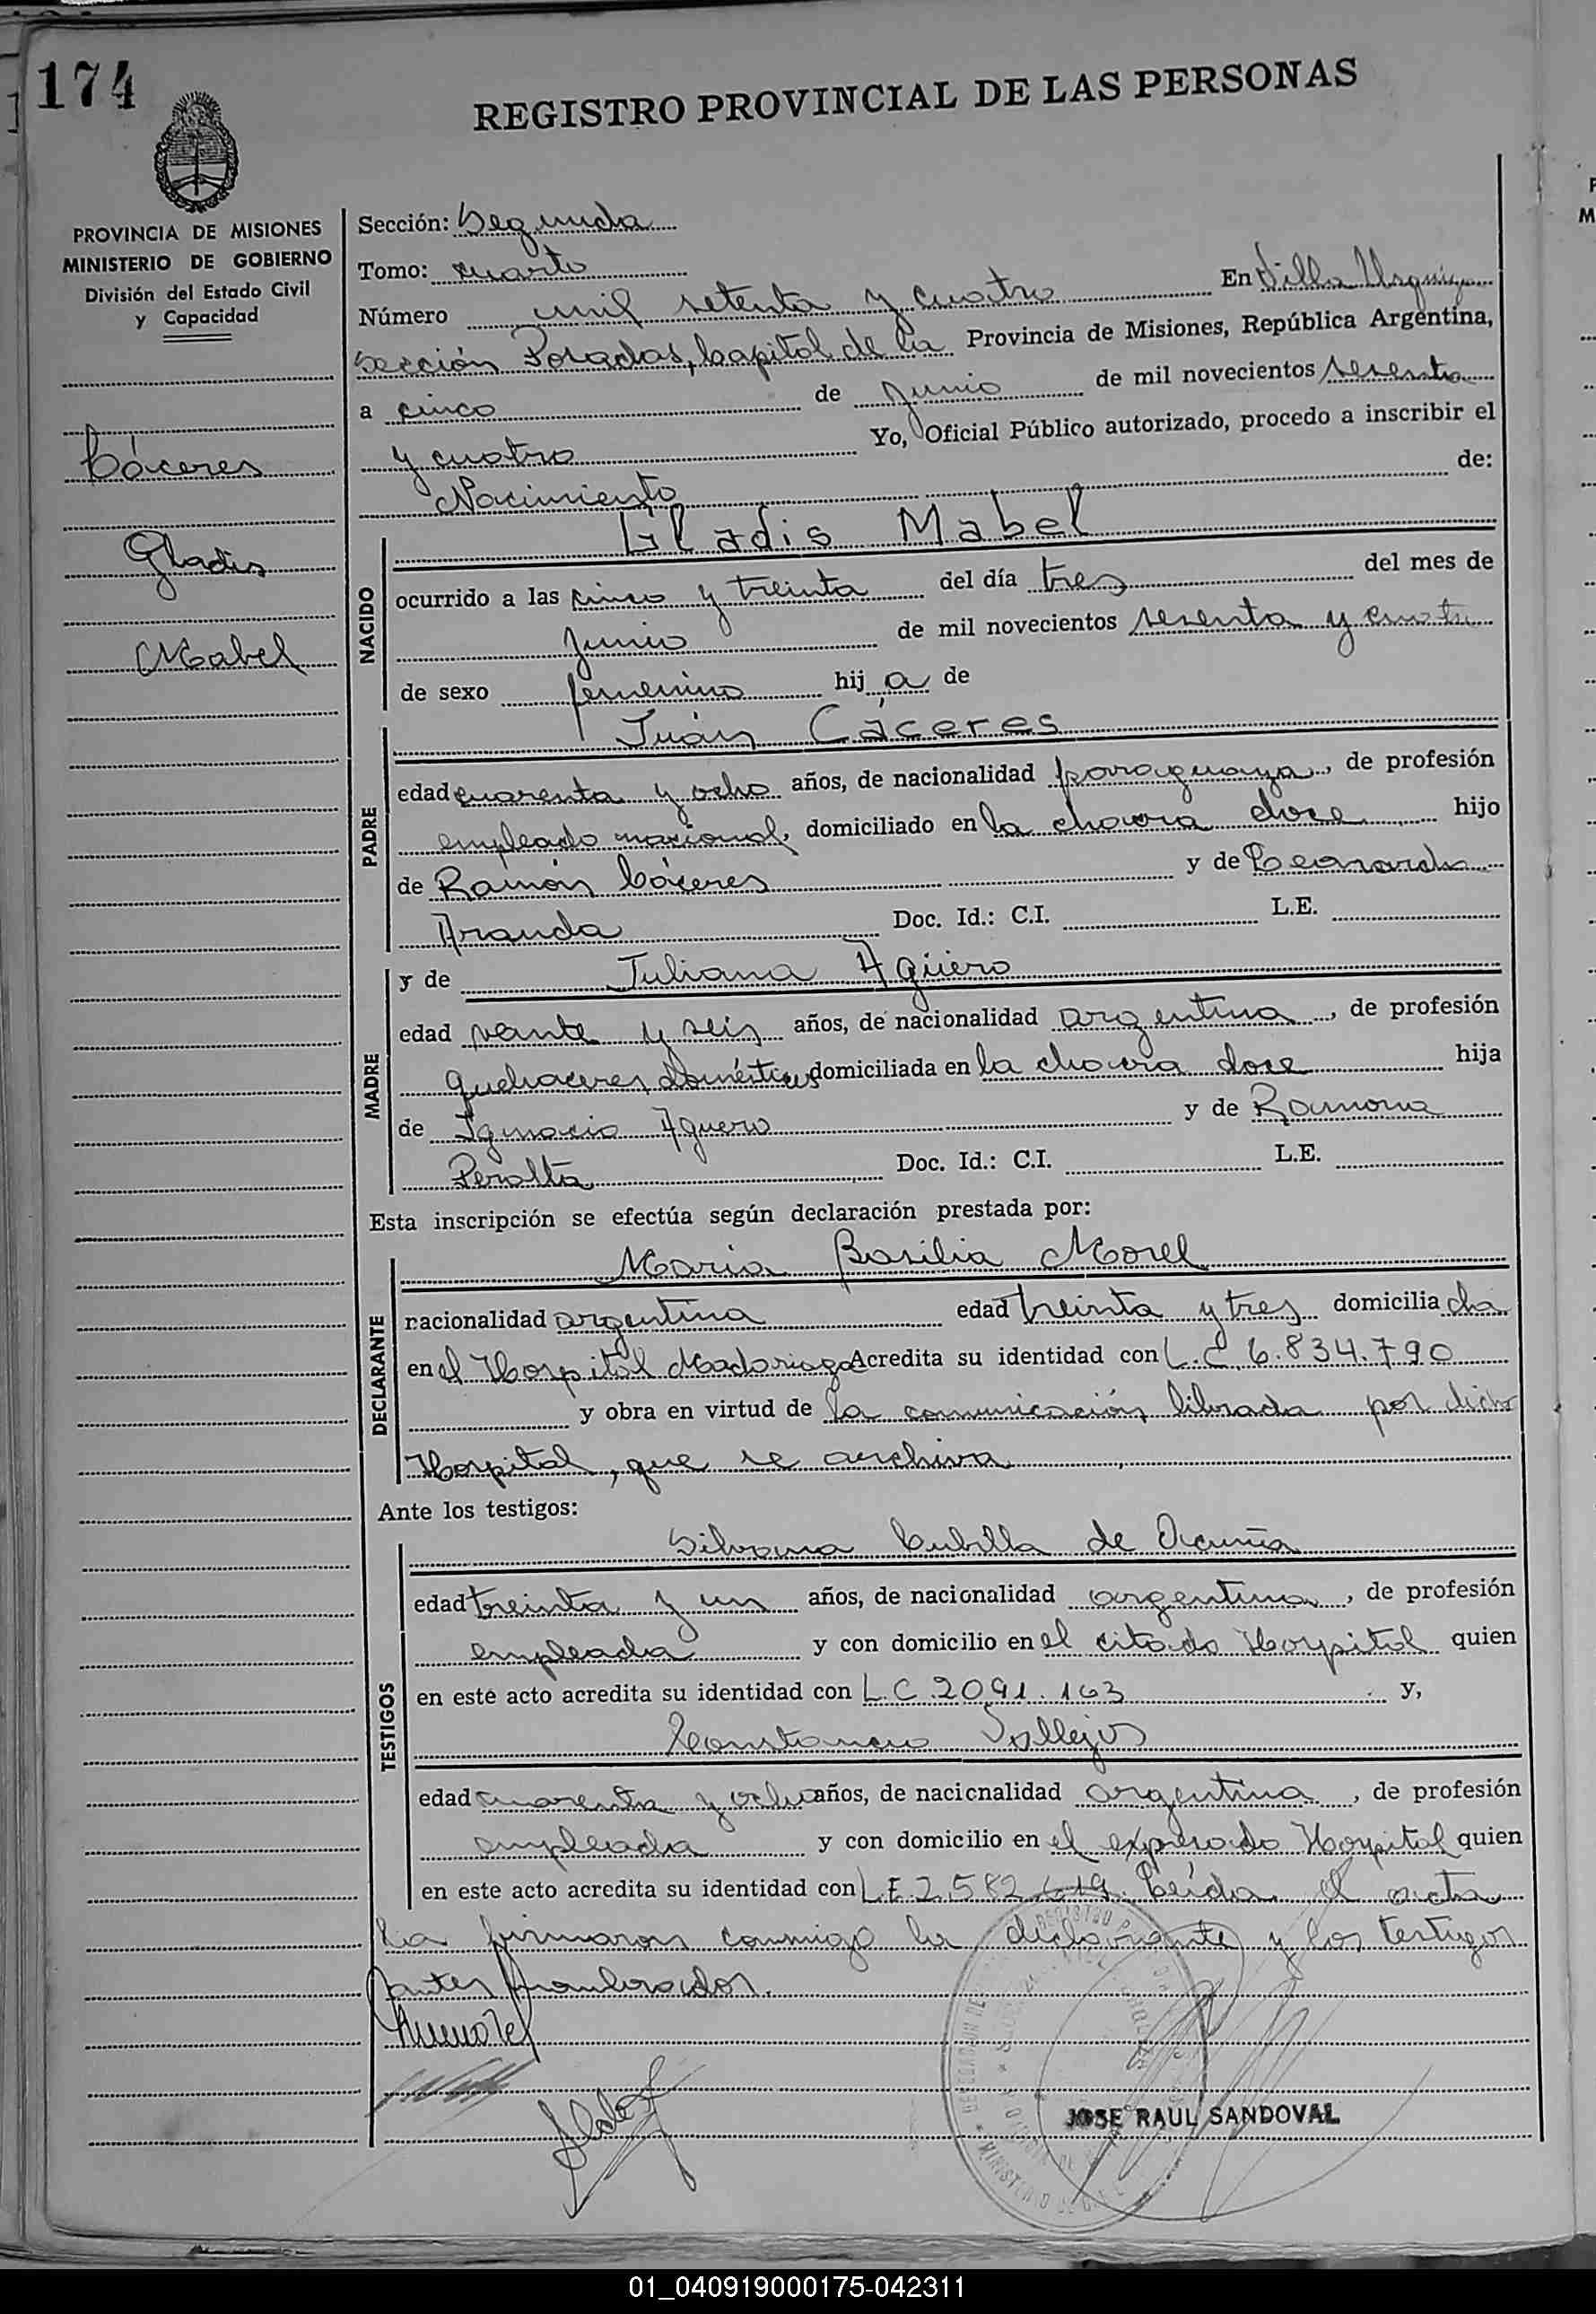 174
REGISTRO PROVINCIAL DE LAS PERSONAS
PROVINCIA DE MISIONES
MINISTERIO DE GOBIERNO
División del Estado Civil
y Capacidad
Cáceres
Gladis
Mabel
Sección: Segunda
Tomo: cuarto
Número mil setenta y cuatro En Villa Urquiza
Sección Posadas, Capital de la Provincia de Misiones, República Argentina,
a cinco de Junio de mil novecientos sesenta
y cuatro Yo, Oficial Público autorizado, procedo a inscribir el
Nacimiento de:
NACIDO
Gladis Mabel
ocurrido a las cinco y treinta del día tres del mes de
junio de mil novecientos sesenta y cuatro
de sexo femenino hij a de
PADRE
Juán Cáceres
edad cuarenta y ocho años, de nacionalidad paraguaya, de profesión
empleado nacional, domiciliado en la chacra doce hijo
de Ramón Cáceres y de
Aranda Doc. Id.: C.I. L.E.
MADRE
y de Juliana Agüero
edad veinte y seis años, de nacionalidad argentina, de profesión
quehaceres domésticos domiciliada en la chacra doce hija
de Ignacio Aguero y de Ramona
Peralta Doc. Id.: C.I. L.E.
Esta inscripción se efectúa según declaración prestada por:
DECLARANTE
Maria Basilia Morel
nacionalidad argentina edad treinta y tres domicilia da
en el Hospital Madariaga Acredita su identidad con L.C 6.834.790
y obra en virtud de la comunicación librada por dicho
Hospital, que se archiva
Ante los testigos:
TESTIGOS
Silvana Cubilla de Acuña
edad treinta y un años, de nacionalidad argentina, de profesión
empleada y con domicilio en el citado Hospital quien
en este acto acredita su identidad con L.C. 2091.163 y,
Constancio Vallejos
edad cuarenta y ocho años, de nacicnalidad argentina, de profesión
empleada y con domicilio en el expresado Hospital quien
en este acto acredita su identidad con L.E 2.582.619. Leída el acta
la firmaron conmigo la declarante y los testigos
antes nombrados.
JOSE RAUL SANDOVAL
01_040919000175-042311